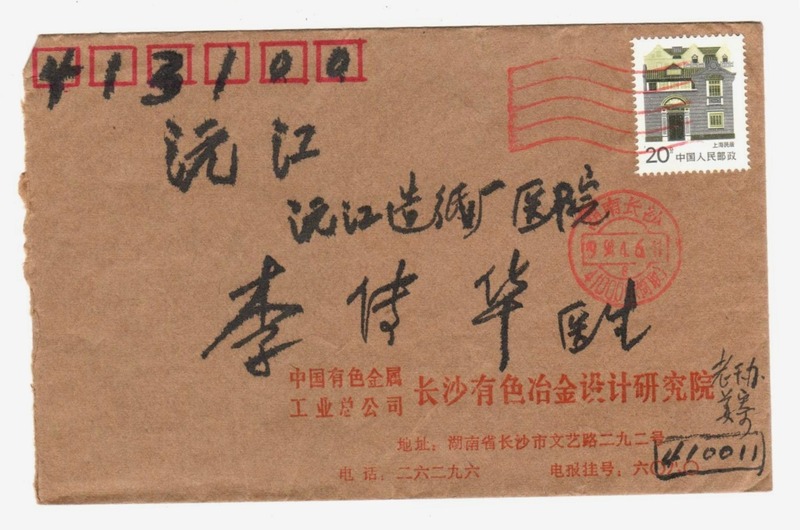 413100
上海民居
20分 中国人民邮政
沅江
沅江造纸厂医院
湖南长沙
李传华医生
中国有色金属
工业总公司
长沙有色冶金设计研究院
老干办
地址：湖南省长沙市文艺路二九二号
410011
电话：二六二九六 电报挂号：六〇六〇